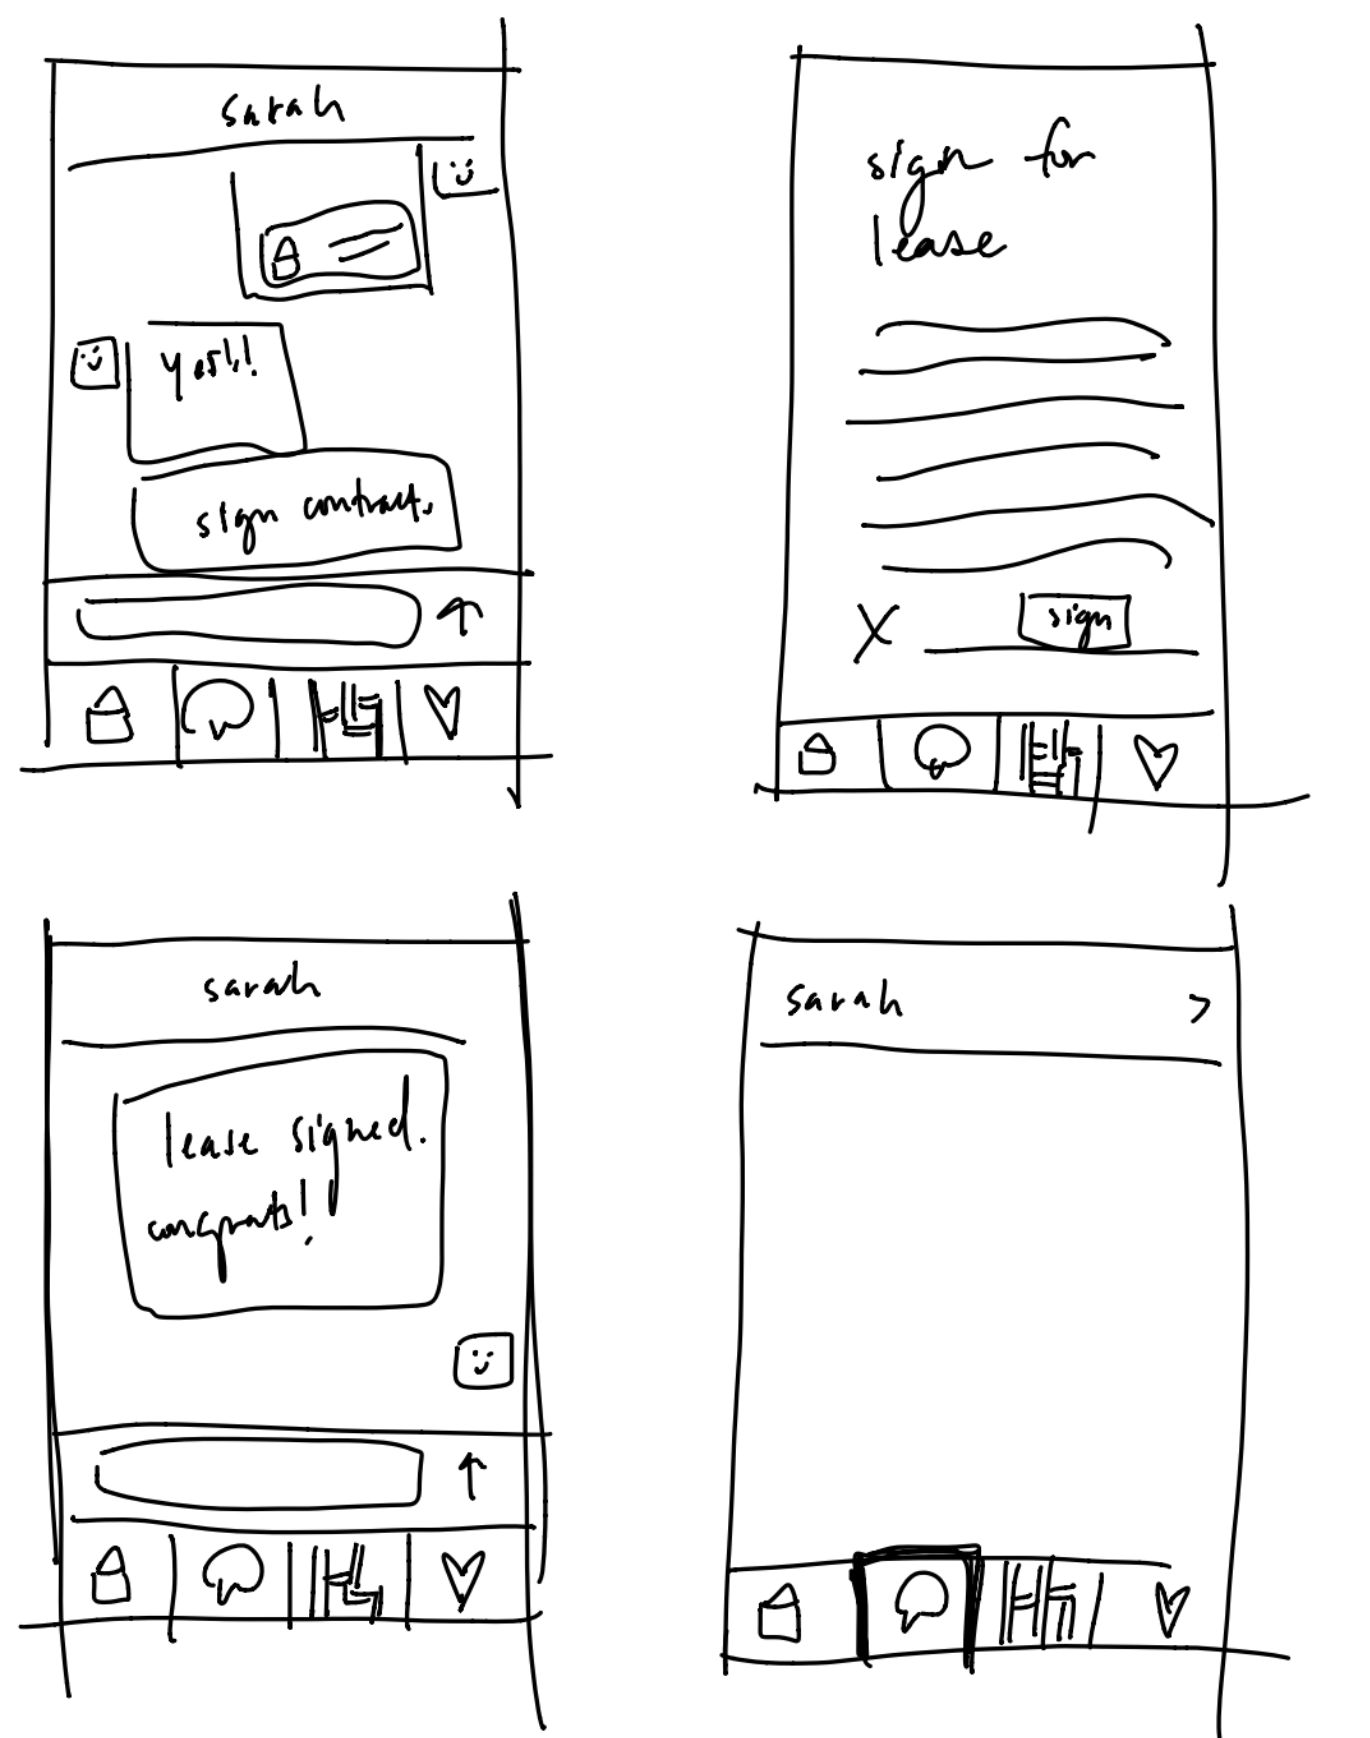 sarah
yes!!!
sign contract.
sign for
lease
X
sign
sarah
lease signed.
congrats!!
sarah